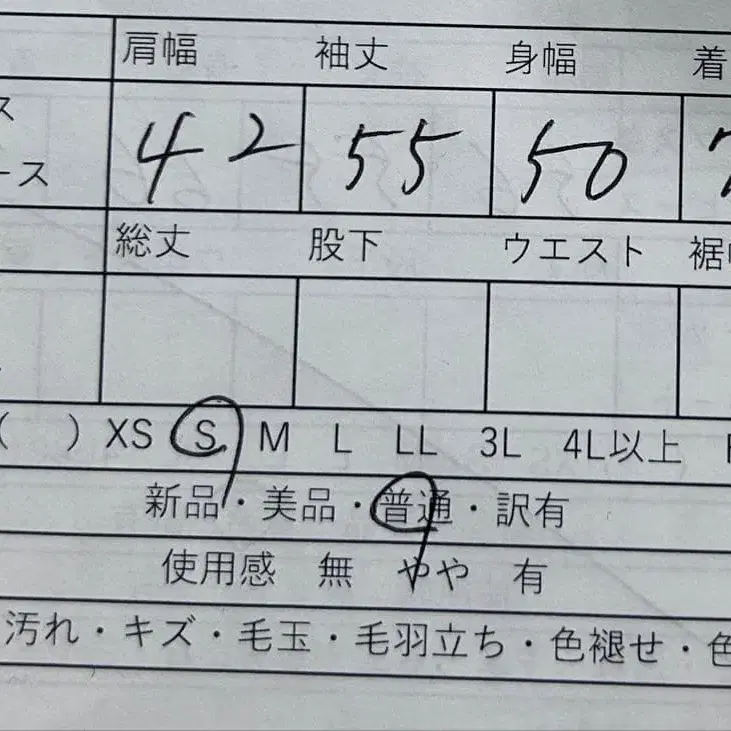 肩幅 袖丈 身幅 着
ス
ース 42 55 50 7
総丈 股下 ウエスト 裾
( ) XS S M L LL 3L 4L以上
新品・美品・普通・訳有
使用感 無 やや 有
汚れ・キズ・毛玉・毛羽立ち・色褪せ・色